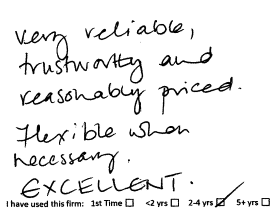 very reliable,
trustworthy and
reasonably priced.
Flexible when
necessary.
EXCELLENT.
I have used this firm: 1st Time ☐ <2 yrs ☐ 2-4 yrs ☑ 5+ yrs ☐